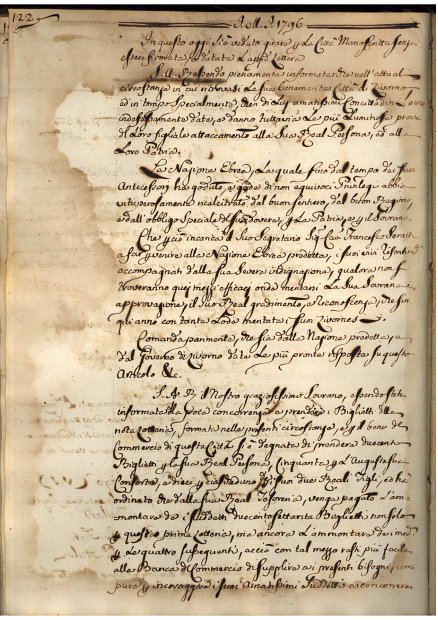 122
A dì 1796
In questo oggi si è veduto girare p la Città Manoscritta senza
essere firmata, nè datata la Lettera
S. A. R. essendo pienamente informata che nell'attual
circostanza in cui trovasi la sua benamata Città di Livorno
ed in tempo specialmente, che i di Lei amatissimi Concittadini l'anno
indefessamente date, e danno tuttavia le più luminose prove
del Loro figliale attaccamento alla Sua Real Persona, ed alla
Loro Patria.
La Nazione Ebrea, la quale fino dal tempo dei suoi
Antecessori ha goduto, e gode di non equivoci Privilegi abbia
vituperosamente ricalcitrato dal buon sentiero, dal
e dall'obbligo speciale di p la Patria, e p il Sovrano.
Che p ciò incarica il Suo Segretario Sig. Cav. Francesco Seratti
a far pervenire alla Nazione Ebrea predetta, i suoi vivi risentimenti
accompagnati dalla sua severa indignazione, qualora non
troveranno quei mezzi efficaci onde meritarsi la Sua Sovrana
approvazione, il suo Real gradimento, e riconoscenza, che fin
qui anno con tanta Lode meritata i suoi Livornesi.
Comanda parimente, che sia dalla Nazione predetta, e
dal Governo di Livorno data la più pronta risposta su questo
Articolo &c.
S. A. R. il Nostro graziosissimo Sovrano, essendo stato
informato della poca concorrenza a prendere i Biglietti della
nota Lotteria, formata nelle presenti circostanze, e p il bene del
Commercio di questa Città si è degnata di prendere duecento
Biglietti p la sua Real Persona, Cinquanta p l'Augusta sua
Consorte, e dieci p ciascheduno dei suoi due Reali Figli, ed ha
ordinato che dalla sua Real Tesoreria, venga pagato l'am=
montare dei suddetti duecentosettanta Biglietti non solo
p questa prima Lotteria, ma ancora l'ammontare dei med.
p le quattro susseguenti, acciò con tal mezzo resti più facile
alla Banca di Commercio di supplire ai presenti bisogni, com
pure p incoraggire i suoi Amatissimi Sudditi a concorrere